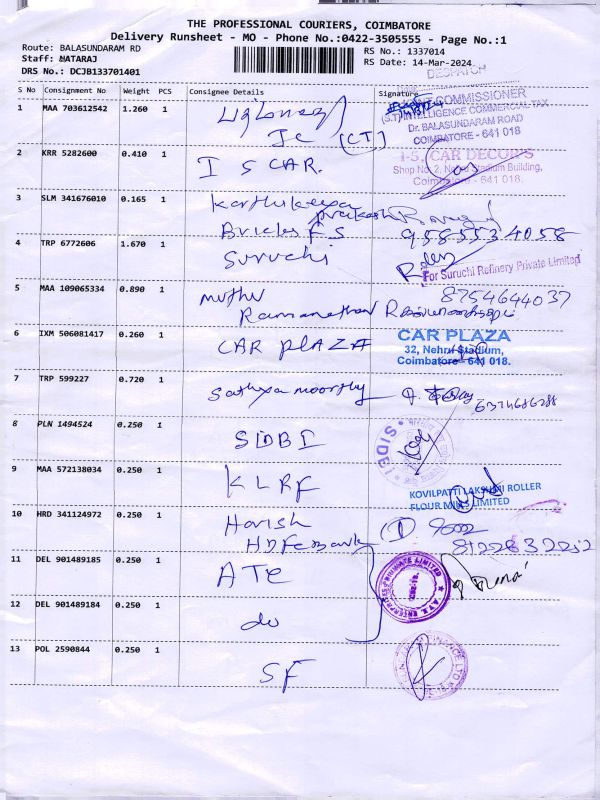 THE PROFESSIONAL COURIERS, COIMBATORE
Delivery Runsheet - MO - Phone No.:0422-3505555 - Page No.:1
Route: BALASUNDARAM RD
Staff: MATARAJ
DRS No.: DCJB133701401
RS No.: 1337014
RS Date: 14-Mar-2024
DESPATCH
S No Consignment No Weight PCS Consignee Details Signature
1 MAA 703612542 1.260 1
COMMISSIONER
(S.T) INTELLIGENCE COMMERCIAL TAX
Dr. BALASUNDARAM ROAD
COIMBATORE - 641 018
Jc (CT)
2 KRR 5282600 0.410 1 I S CAR.
I-5, CAR DECOR'S
Shop No. 2, Nehru Stadium Building,
Coimbatore - 641 018.
3 SLM 341676010 0.165 1 Karthikeya
Prakash R
Bricks F S 9585534058
4 TRP 6772606 1.670 1 Suruchi
For Suruchi Refinery Private Limited
5 MAA 109065334 0.890 1 muthu 8754644037
Ramanathan
6 IXM 506081417 0.260 1 CAR PLAZA
CAR PLAZA
32, Nehru Stadium,
Coimbatore - 641 018.
7 TRP 599227 0.720 1 Sathya moorthy
6374686288
8 PLN 1494524 0.250 1 SIDBI
SIDBI
9 MAA 572138034 0.250 1 KLRF
KOVILPATTI LAKSHMI ROLLER
FLOUR MILLS LIMITED
10 HRD 341124972 0.250 1 Harish
HDFC Bank
11 DEL 901489185 0.250 1 ATE
A.T.E. ENTERPRISES PRIVATE LIMITED
12 DEL 901489184 0.250 1 do
13 POL 2590844 0.250 1 SF